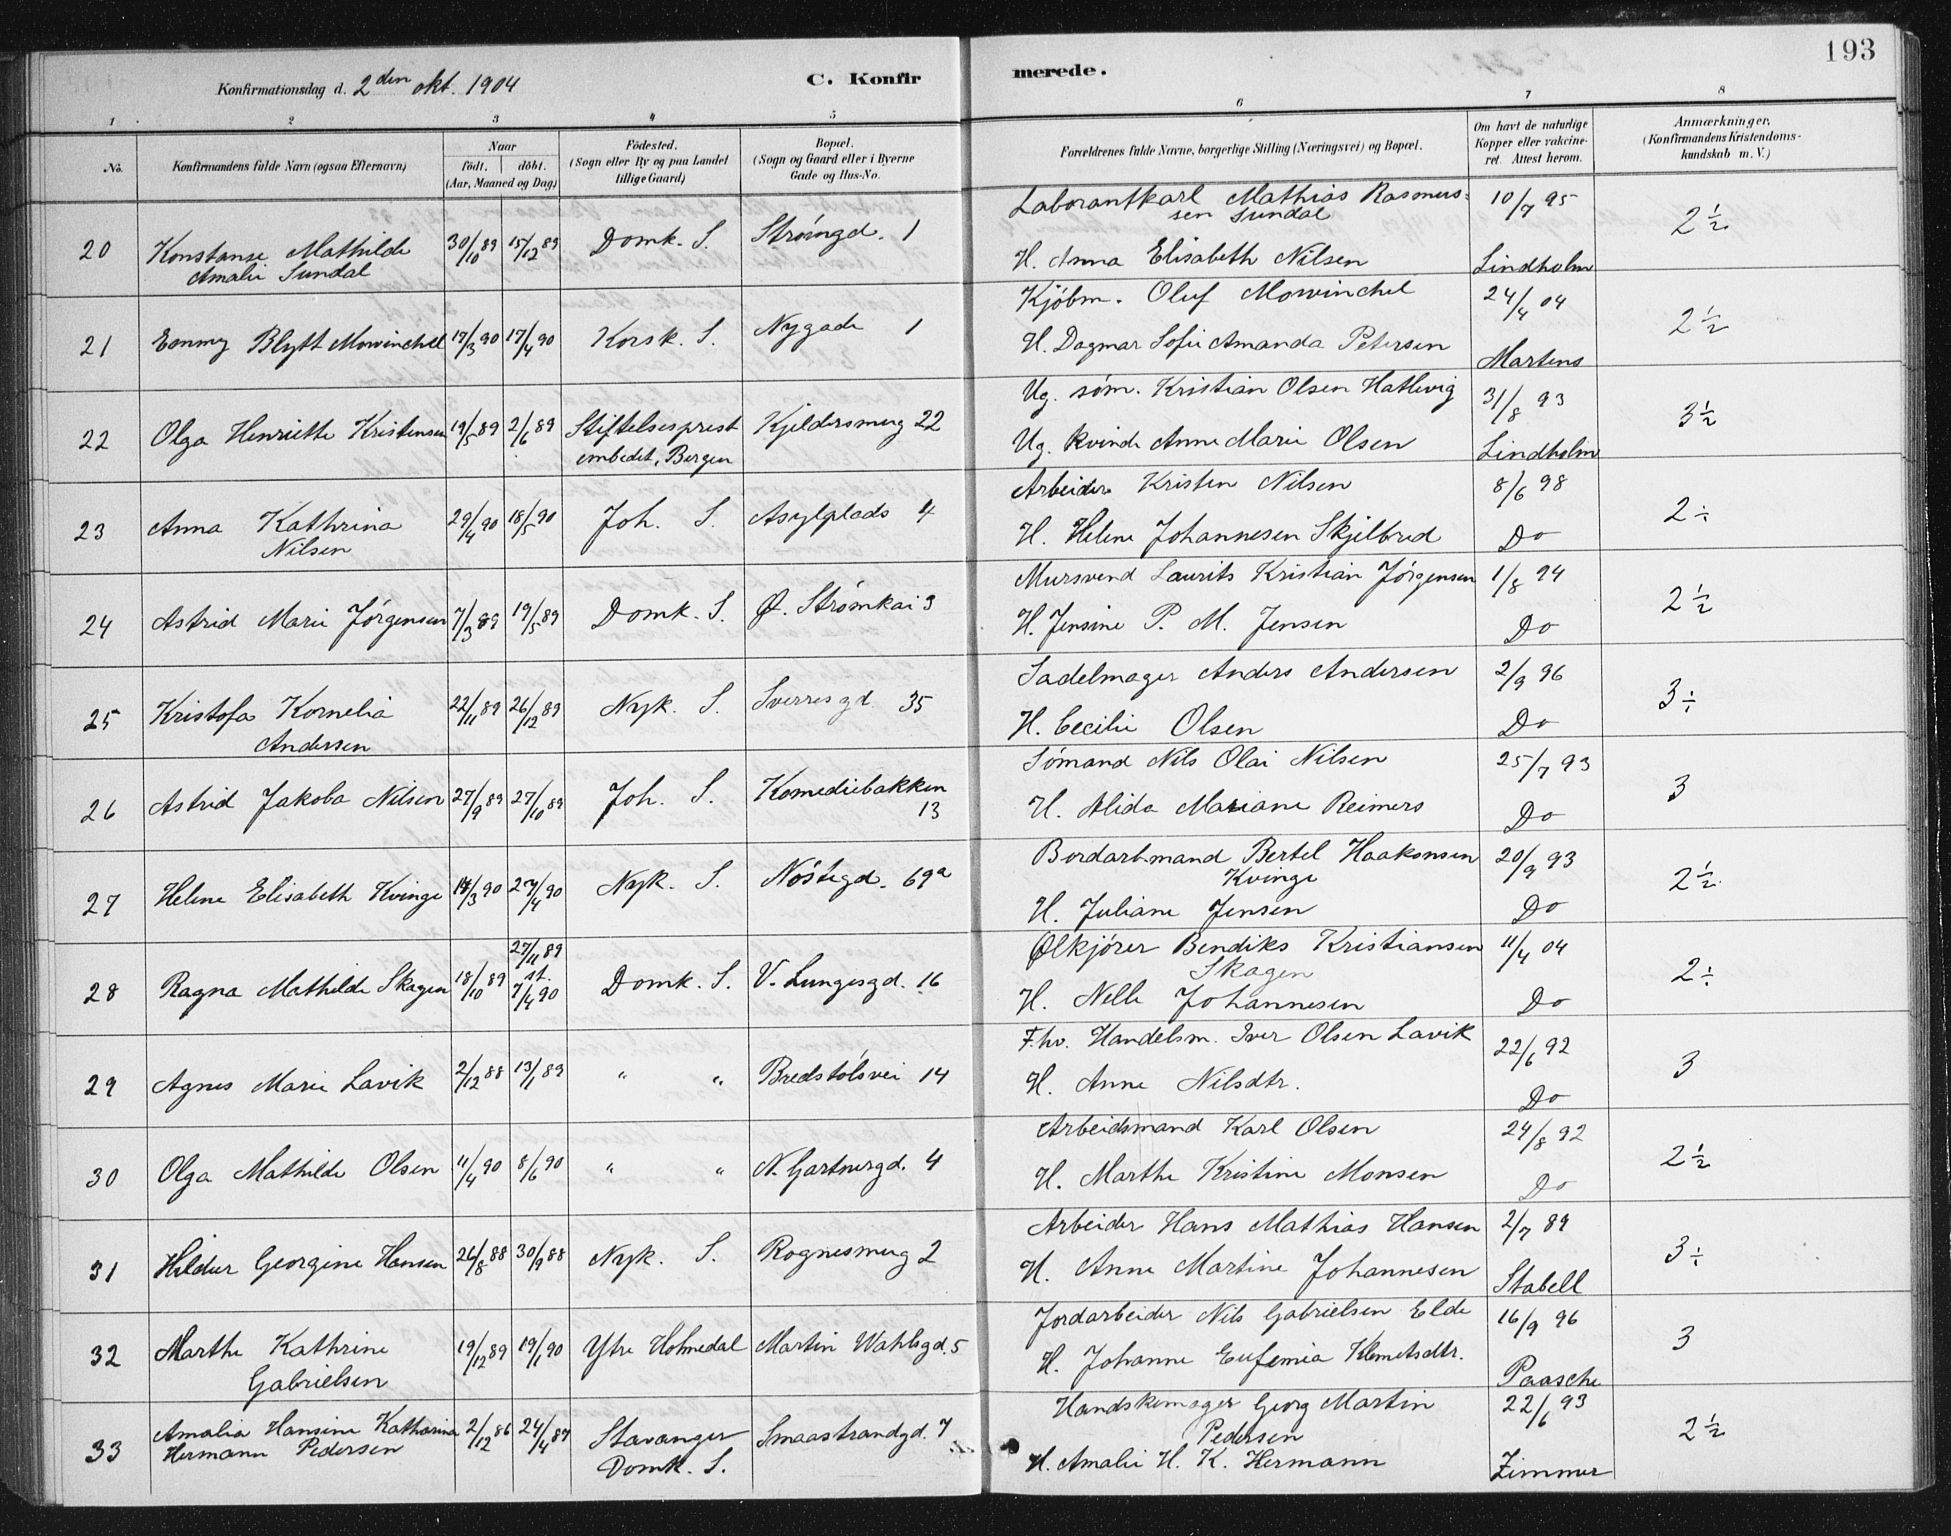 193
Konfirmationsdag d. 2den okt. 1904
C. Konfirmerede.
1 2 3 4 5 6 7 8
No. Konfirmandens fulde Navn (ogsaa Efternavn) Naar født. døbt. (Aar, Maaned og Dag) Fødested. (Sogn eller By og paa Landet tillige Gaard) Bopæl. (Sogn og Gaard eller i Byerne Gade og Hus-No. Forældrenes fulde Navne, borgerlige Stilling (Næringsvei) og Bopæl. Om havt de naturlige Kopper eller vakcineret. Attest herom. Anmærkninger. (Konfirmandens Kristendomskundskab m. V.)
Laborantkarl Mathias Rasmus- 10/7 95
sen Sundal
20 Konstanse Mathilde 30/10 89 15/12 89 Domk. S. Strømgd. 1 2 1/2
Amalie Sundal H. Anna Elisabeth Nilsen Lindholm
Kjøbm. Oluf Mowinckel 24/4 04
21 Emmy Blytt Mowinckel 17/3 90 17/4 90 Korsk. S. Nygade 1 2 1/2
H. Dagmar Sofie Amanda Petersen Martens
Ug. søm. Kristian Olsen Hatlevig 31/8 93
22 Olga Henriette Kristensen 19/5 89 2/6 89 Stiftelsesprest Kjeldersmug 22 3 1/2
embedet, Bergen Ug. kvinde Anne Marie Olsen Lindholm
Arbeider Kristen Nilsen 8/6 98
23 Anna Kathrina 29/4 90 18/5 90 Joh. S. Asylplads 4 2 ÷
Nilsen H. Helene Johannesen Skjelbred Do
Mursvend Laurits Kristian Jørgensen 1/8 94
24 Astrid Marie Jørgensen 7/3 89 19/5 89 Domk. S. Ø. Strømkai 3 2 1/2
H. Jensine P. M. Jensen Do
Sadelmager Anders Andersen 2/9 96
25 Kristofa Kornelia 22/11 89 26/12 89 Nyk. S. Sverresgd 35 3 ÷
Andersen H. Cecilie Olsen Do
Sømand Nils Olai Nilsen 25/7 93
26 Astrid Jakoba Nilsen 27/9 89 27/10 89 Joh. S. Komediebakken 3
13 H. Alida Mariane Reimers Do
Bordarb.mand Bertel Haakonsen 20/9 93
Kvinge
27 Helene Elisabeth Kvinge 14/3 90 27/4 90 Nyk. S. Nøstegd. 69a 2 1/2
H. Juliane Jensen Do
27/11 89 Ølkjører Bendiks Kristiansen 11/4 04
st. Skagen
28 Ragna Mathilde Skagen 18/10 89 7/4 90 Domk. S. V. Lungegd. 16 2 ÷
H. Nelle Johannesen Do
F.hv. Handelsm. Iver Olsen Lavik 22/6 92
29 Agnes Marie Lavik 2/12 88 13/1 89 " " Bredstølsvei 14 3
H. Anne Nilsdtr. Do
Arbeidsmand Karl Olsen 24/8 92
30 Olga Mathilde Olsen 11/4 90 8/6 90 " " N. Gartnergd. 4 2 1/2
H. Marthe Kristine Monsen Do
Arbeider Hans Mathias Hansen 2/7 89
31 Hildur Georgine Hansen 26/8 88 30/9 88 Nyk. S. Rognesmug 2 3 ÷
H. Anne Martine Johannesen Stabell
Jordarbeider Nils Gabrielsen Elde 16/9 96
32 Marthe Kathrine 19/12 89 19/1 90 Ytre Holmedal Martin Wahlsgd. 5 3
Gabrielsen H. Johanne Eufemia Klemetsdtr. Paasche
Handskemager Georg Martin 22/6 93
Pedersen
33 Amalia Hansine Katharina 2/12 86 24/4 87 Stavanger Smaastrandgd. 7 2 1/2
Hermann Pedersen Domk. S. H. Amalie H. K. Hermann Zimmer